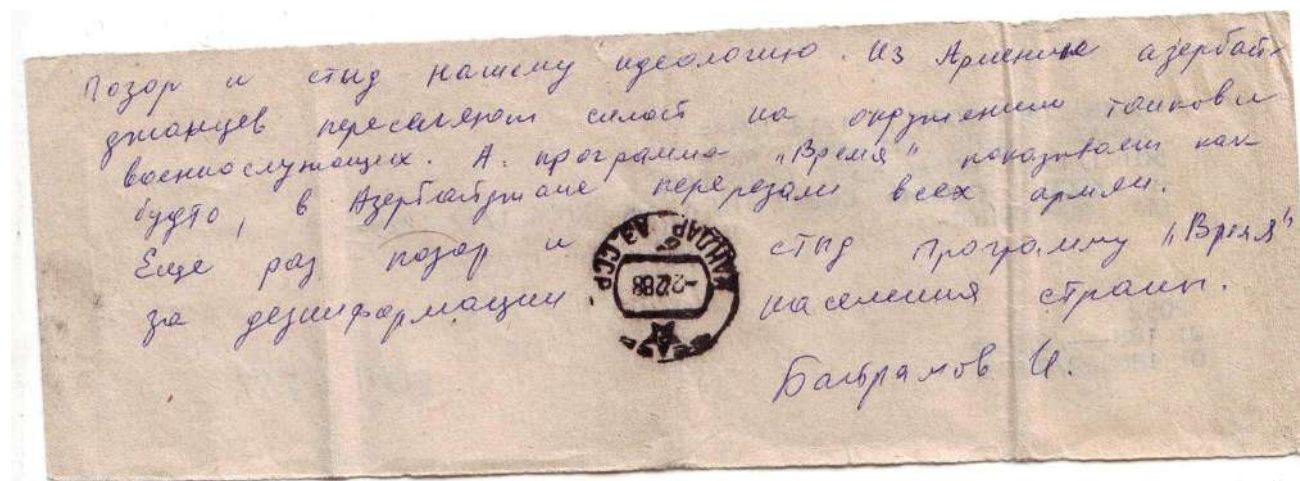 Позор и стыд нашему идеологию. Из Армении азербай-
джанцев переселяют силой на окружении танков и
военнослужащих. А программа „Время" показывает как
будто, в Азербайджане перерезали всех армян.
Еще раз позор и стыд программу „Время"
за дезинформации населения страны.
Байрамов И.
АЗ. ССР
-2288